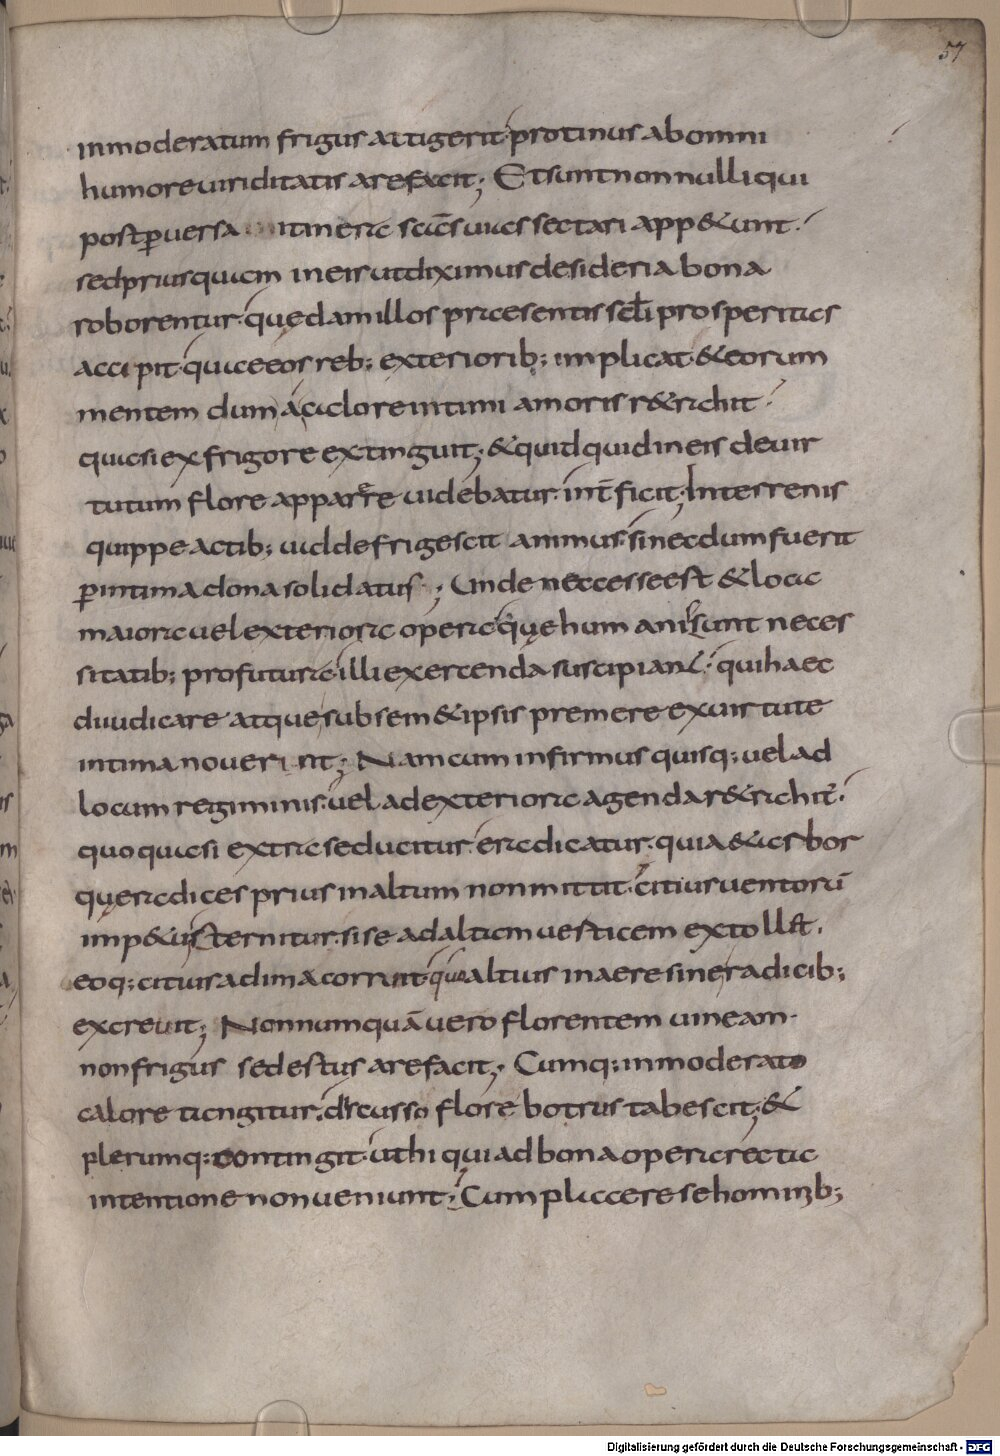 57
inmoderatum frigus attigerit protinus abomni
humore uiriditatis arefacit; Et sunt non nulli qui
post ꝑuersa itinera scās uias sectari app&unt.
sed priusquam ineis ut diximus desideria bona
roborentur. quędam illos praesentis sc̄li prosperitas
accipit. quae eos reb; exteriorib; implicat. & eorum
mentem dum a calore intimi amoris r&rahit.
quasi ex frigore extinguit; & quidquid in eis de uir
tutum flore apparere uidebatur. int̄ficit; In terrenis
quippe actib; ualde frigescit animus. si necdum fuerit
ꝑ intima dona solidatus; Unde neccesse est & loca
maiora uel exteriora opera quę humanis sunt neces
sitatib; profutura. illi exercenda suscipiant. qui haec
diiudicare atque subsem&ipsis premere ex uirtute
intima nouerint; Nam cum infirmus quisq; uel ad
locum regiminis. uel ad exteriora agenda r&rahit.
quo quasi extra se ducitur. eradicatur. quia & arbor
quę radices prius in altum non mittit. citius uentorū
imp&u sternitur. si se ad altam uesticem extollit.
eoq; citius ad ima corruit quo altius in aere sine radicib;
excreuit; Nonnumquā uero florentem uineam.
non frigus sed estus arefacit; Cumq; inmoderato
calore tangitur. discusso flore botrus tabescit; &
plerumq; contingit. ut hi qui ad bona opera recta
intentione non ueniunt; Cum placcere se hominib;
Digitalisierung gefördert durch die Deutsche Forschungsgemeinschaft - DFG